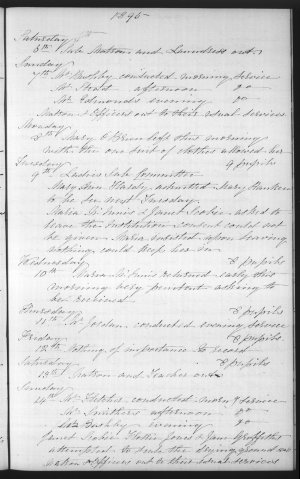 1895
Saturday
6th Sub Matron and Laundress out
Sunday
7th Mr conducted morning service
Mr afternoon do
Mr Edmonds evening do
Matron & Officers out to their usual services
Monday
8th Mary O'Brien left this morning
with the one suit of clothes allowed her
Tuesday 4 pupils
9th Ladies Sub Committee
Mary Ann admitted Mary
to be next Tuesday
Maria McInnis & Janet asked to
leave the Institution consent could not
be given Maria insisted upon having
nothing could keep her in
Wednesday 8 pupils
10th Maria McInnis returned early this
morning very penitent asking to
be received
Thursday 8 pupils
11th Mr Jordan conducted evening service
Friday 8 pupils
12th Nothing of importance to record
Saturday 8 pupils
13th Matron and Teacher out
Sunday
14th Mr Fletcher conducted morng service
Mr Smithers afternoon do
Mr evening do
Janet Jones & Jane Griffiths
attempted to scale the drying ground
Matron & Officers out to their usual services